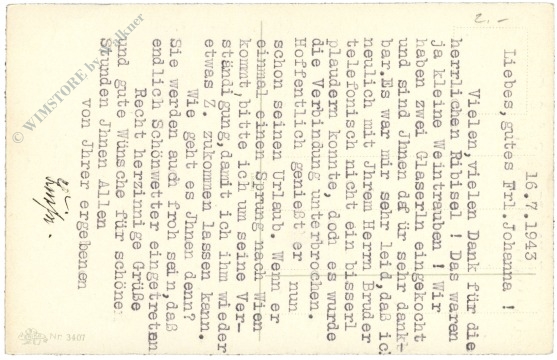 2.-
16.7.1943
Liebes,gutes Frl.Johanna !
Vielen,vielen Dank für die
herrlichen Ribisel ! Das waren
ja kleine Weintrauben ! Wir
haben zwei Glaserln eingekocht
und sind Jhnen dafür sehr dank-
bar.Es war mir sehr leid,daß ich
neulich mit Jhrem Herrn Bruder
telefonisch nicht ein bisserl
plaudern konnte, doch es wurde
die Verbindung unterbrochen.
Hoffentlich genießt er nun
schon seinen Urlaub. Wenn er
einmal einen Sprung nach Wien
kommt,bitte ich um seine Ver-
ständigung,damit ich ihm wieder
etwas Z. zukommen lassen kann.
Wie geht es Jhnen denn?
Sie werden auch froh sein,daß
endlich Schönwetter eingetreten
Recht herzinnige Grüße
und gute Wünsche für schöne
Stunden Jhnen Allen
von Jhrer ergebenen
Nr 3407
© WIMSTORE by Falkner